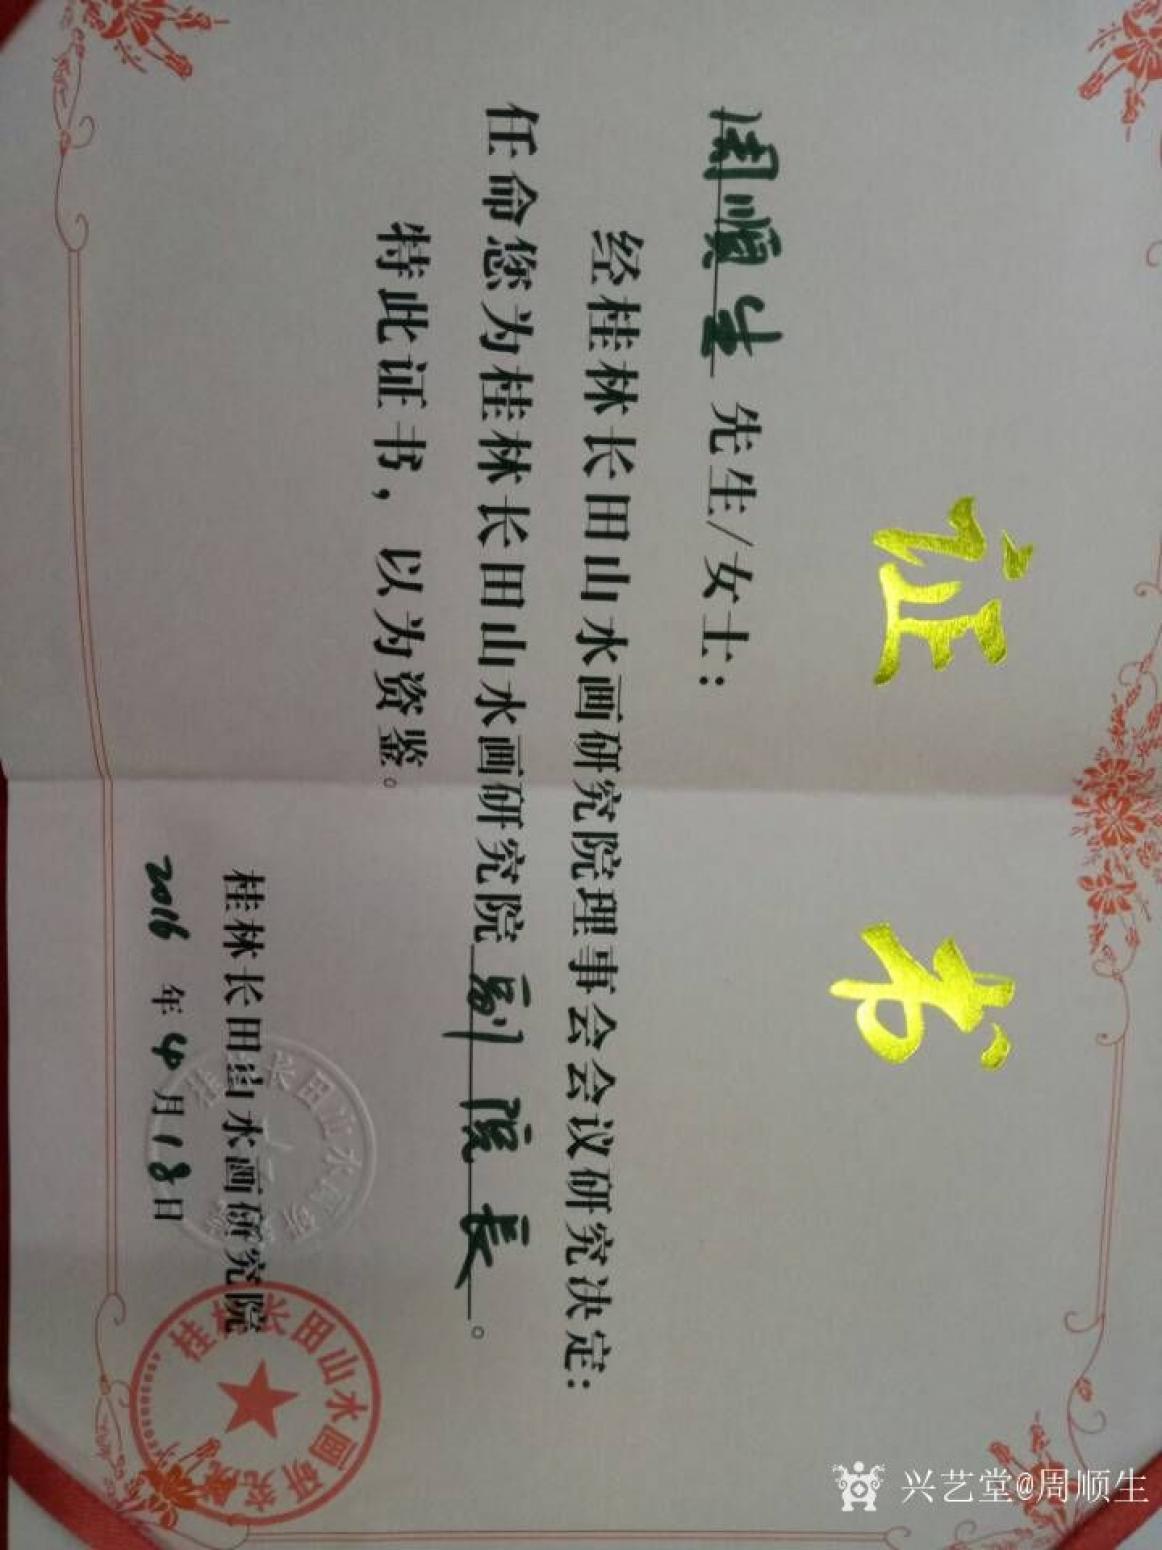 证书
周顺生 先生/女士：
经桂林长田山水画研究院理事会会议研究决定：
任命您为桂林长田山水画研究院副院长。
特此证书，以为资鉴。
桂林长田山水画研究院
2016年4月18日
桂林长田山水画研究院
兴艺堂@周顺生